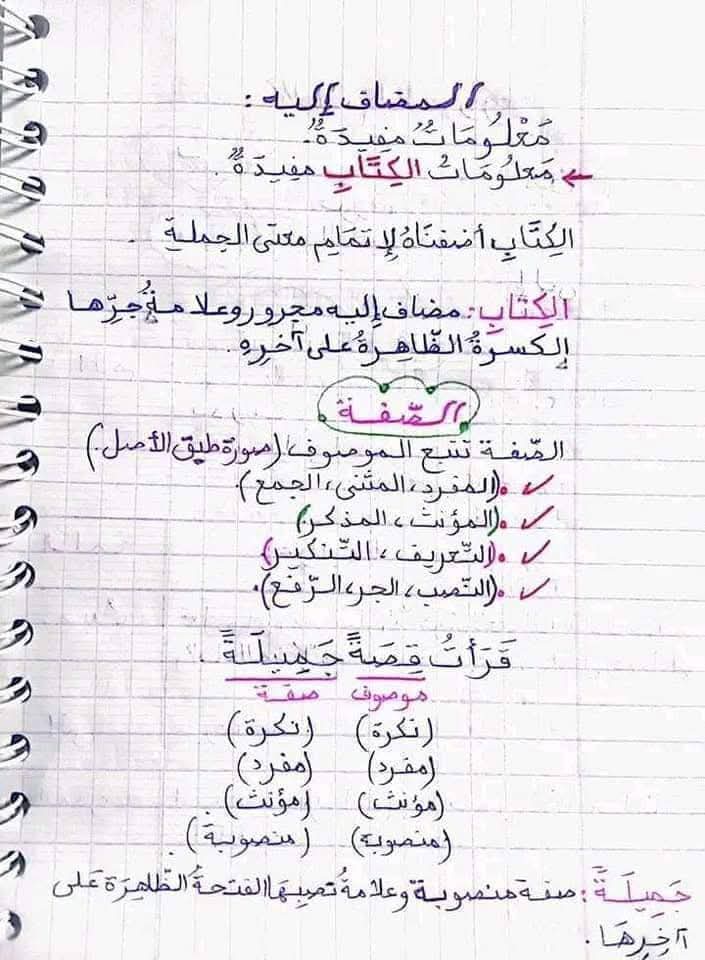 المضاف إليه :
مَعْلُومَاتٌ مفِيدَةٌ.
← مَعلُومَاتُ الكِتَابِ مفِيدَةٌ.
الكِتَابِ أضفنَاهُ لإتمَامِ معنى الجملةِ.
الكِتَابِ: مضاف إليه مجرور وعلامةُ جرِّها
الكسرةُ الظّاهِرةُ على آخرِهِ.
الصّفة
الصّفة تتبع الموصوف (صورة طبق الأصل.)
✓ •(المفرد، المثنى، الجمع).
✓ •(المؤنث، المذكر)
✓ •(التّعريف، التّنكير)
✓ •(النّصب، الجر، الرّفع).
قَرَأتُ قِصَةً جَمِيلَةً.
موصوف صفة
(نكرة) (نكرة)
(مفرد) (مفرد)
(مؤنث) (مؤنث)
(منصوبة) (منصوبة)
جَمِيلَةً: صفة منصوبة وعلامةُ نصبِهَا الفتحةُ الظّاهِرَة عَلى
آخِرِهَا.